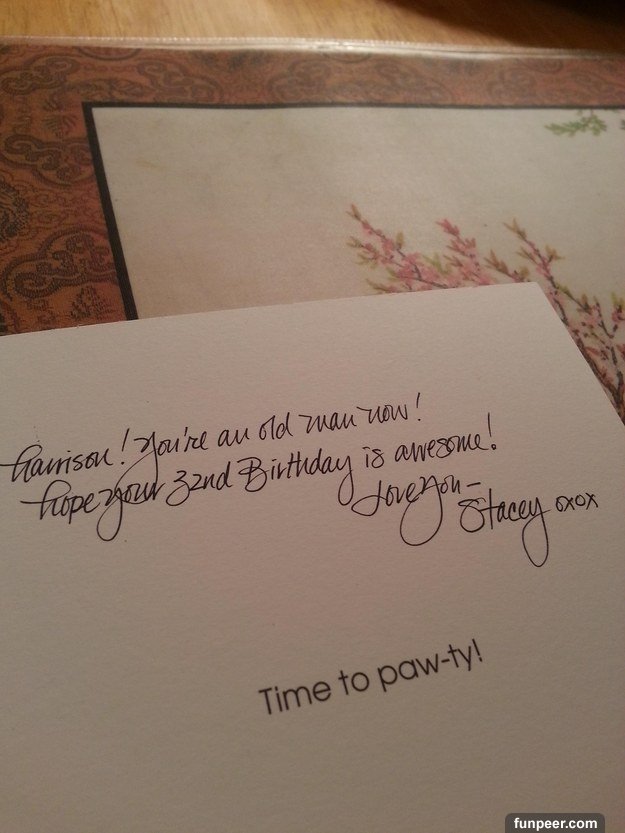 Harrison! You're an old man now!
Hope your 32nd Birthday is awesome!
Love you-
Stacey oxox
Time to paw-ty!
funpeer.com